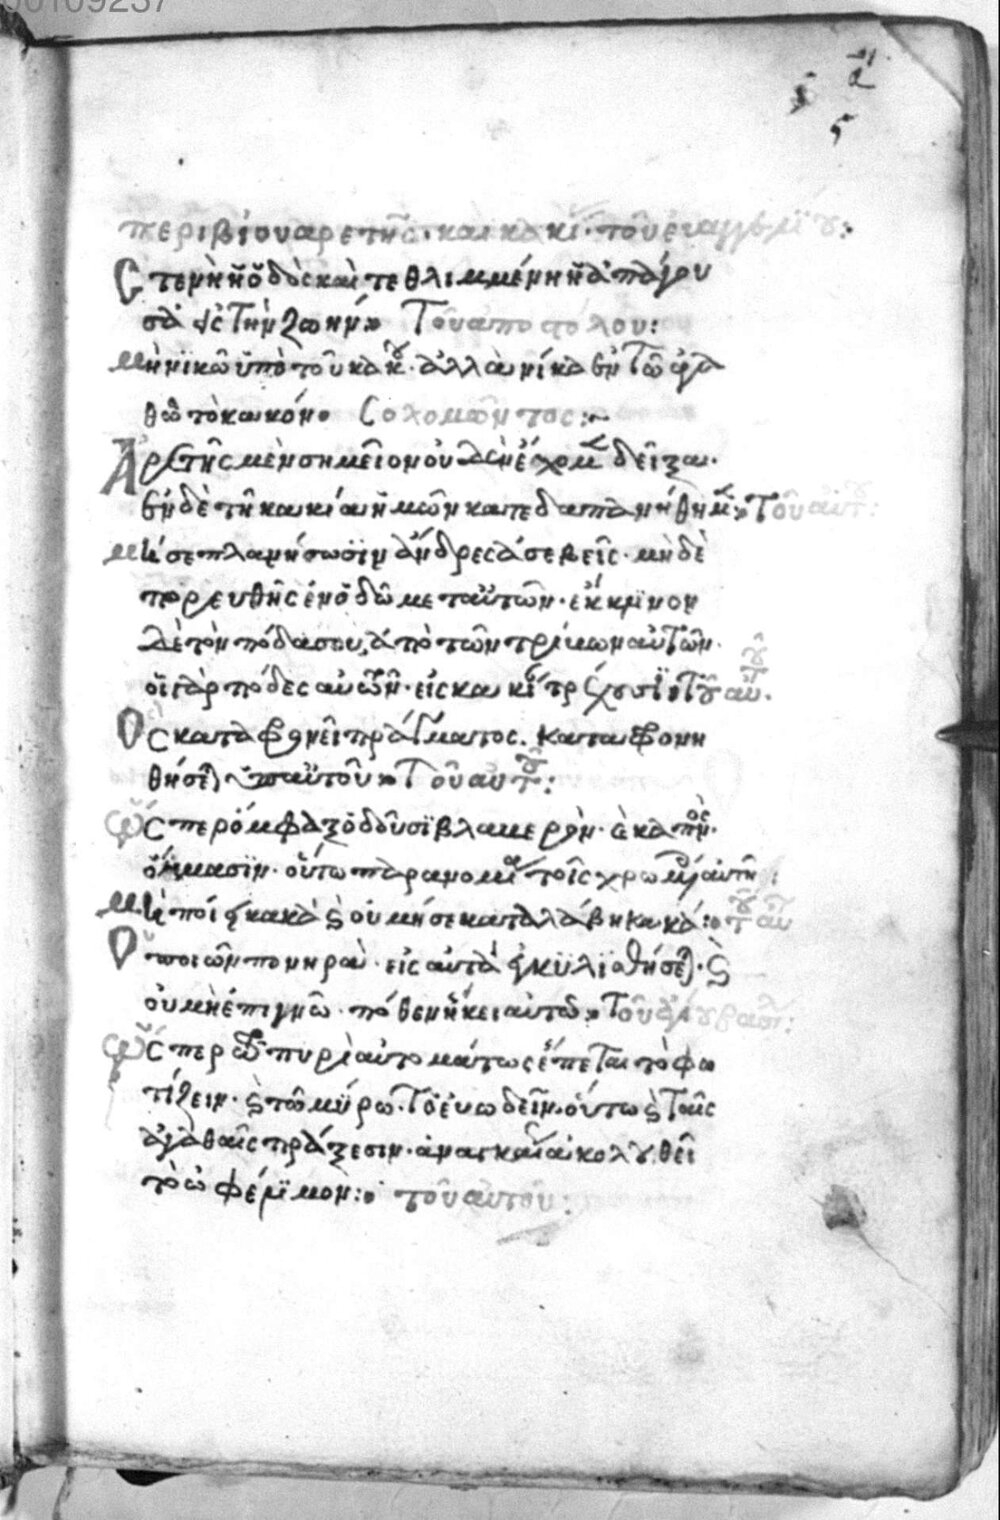 00109237
α
περὶ βίου ἀρετῆς· καὶ κακί· τοῦ εὐαγγελίου:
Στενὴ ἡ ὁδὸς καὶ τεθλιμμένη ἡ ἀπάγου
σα εἰς τὴν ζωήν» Τοῦ ἀποστόλου:
μὴ νικῶ ὑπὸ τοῦ κακοῦ· ἀλλὰ νίκα ἐν τῶ ἀγα
θῶ τὸ κακόν» Σολομῶντος:~
Ἀρετῆς μὲν σημεῖον οὐδὲν ἔσχομεν δεῖξαι·
ἐν δὲ τῆ κακία ἡμῶν κατεδαπανήθημεν» Τοῦ αὐτ:
μή σε πλανήσωσϊν ἄνδρες ἀσεβεῖς· μὴ δὲ
πορευθῆς ἐν ὁδῶ μετ' αὐτῶν· ἔκκλϊνον
δὲ τὸν πόδα σου, ἀπὸ τῶν τρίβων αὐτῶν·
οἱ γὰρ πόδες αὐτῶν· εἰς κακί τρέχουσϊ» τοῦ αὐτ·
Ὃς καταφρονεῖ πράγματος· καταφρονη
θήσεται ὑπ' αὐτοῦ» Τοῦ αὐτοῦ:
Ὥσπερ ὄμφαξ ὀδοῦσϊ βλαβερὸν· καὶ καπνὸς
ὄμμασϊν· οὕτω παρανομία τοῖς χρωμέν αὐτῆ:
Μὴ ποίει κακὰ καὶ οὐ μή σε καταλάβη κακά:» τοῦ αὐτοῦ
Ὁ ποιῶν πονηρὰ· εἰς αὐτὰ ἐγκυλϊσθήσεται· καὶ
οὐ μὴ ἐπιγνῶ· πόθεν ἥκει αὐτῶ»
Ὥσπερ τῶ πυρὶ αὐτομάτως ἕπεται τὸ φω
τίζειν· καὶ τῶ μύρω· τὸ εὐωδεῖν· οὕτω καὶ ταῖς
ἀγαθαῖς πράξεσιν· ἀναγκαίως ἀκολουθεῖ
τὸ ὠφέλϊμον:» τοῦ αὐτοῦ: